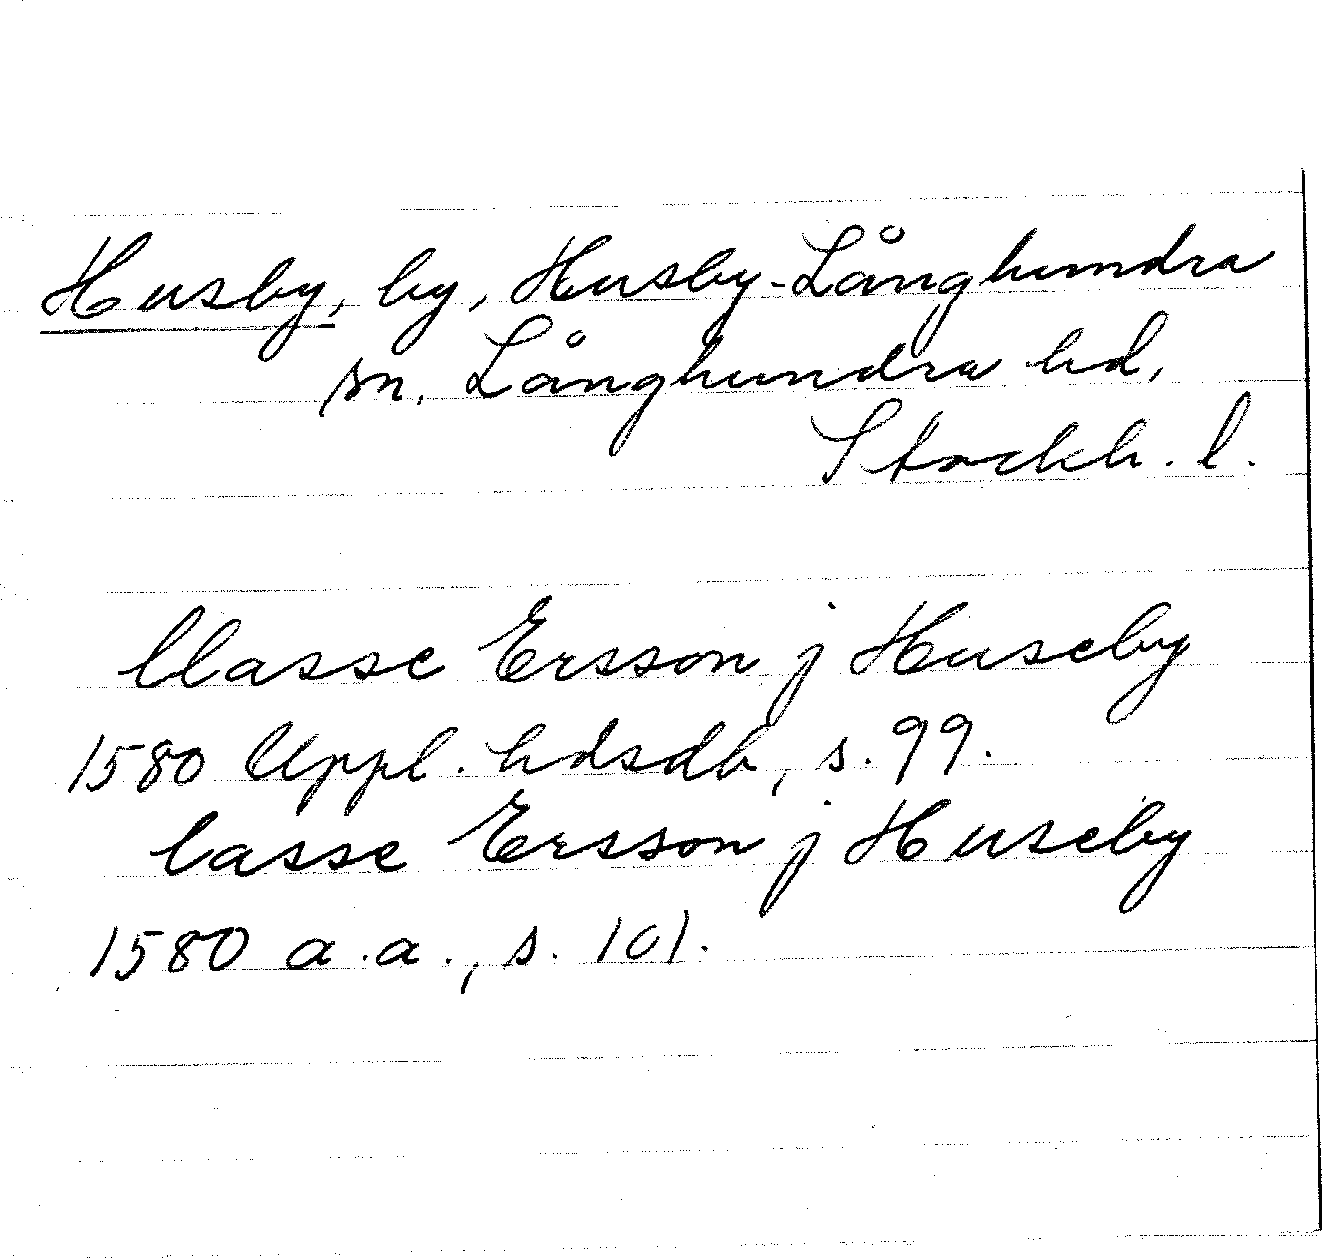 Husby, by, Husby-Långhundra
sn, Långhundra hd,
Stockh. l.
llasse Ersson j Huseby
1580 Uppl. hdsdb, s. 99.
lasse Ersson j Huseby
1580 a.a., s. 101.